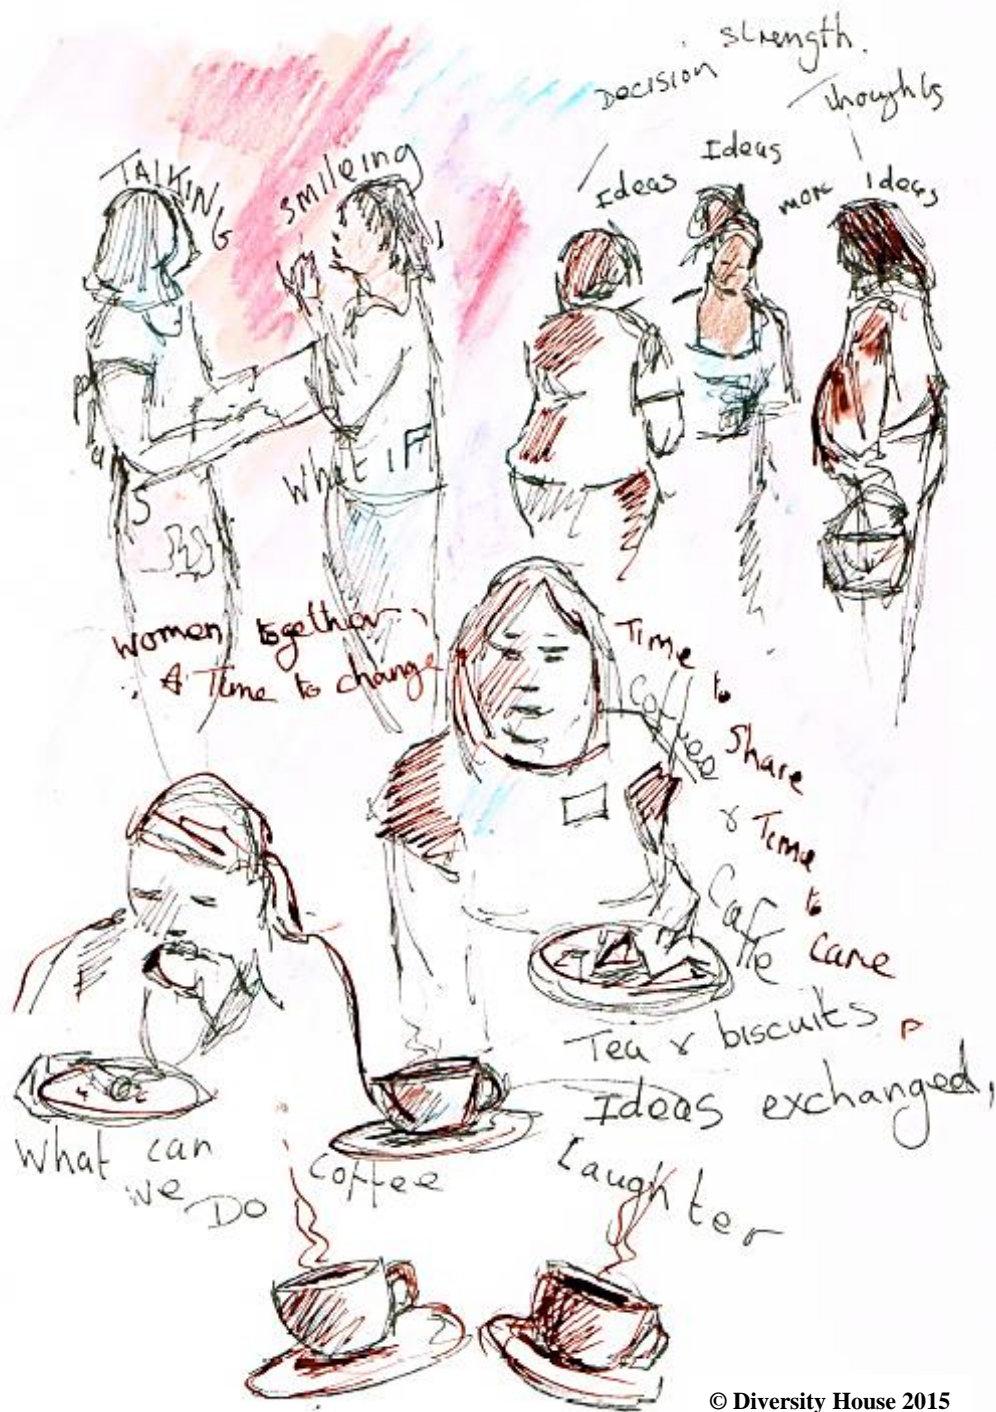 strength.
Decision
Thoughts
Ideas
Ideas
more Ideas
TALKING
smileing
plans
What IF
women together
A Time to change
Time to Share
& Time to care
Coffee
Caffe
Tea & biscuits
Ideas exchanged,
What can
we DO
Coffee
Laughter
© Diversity House 2015